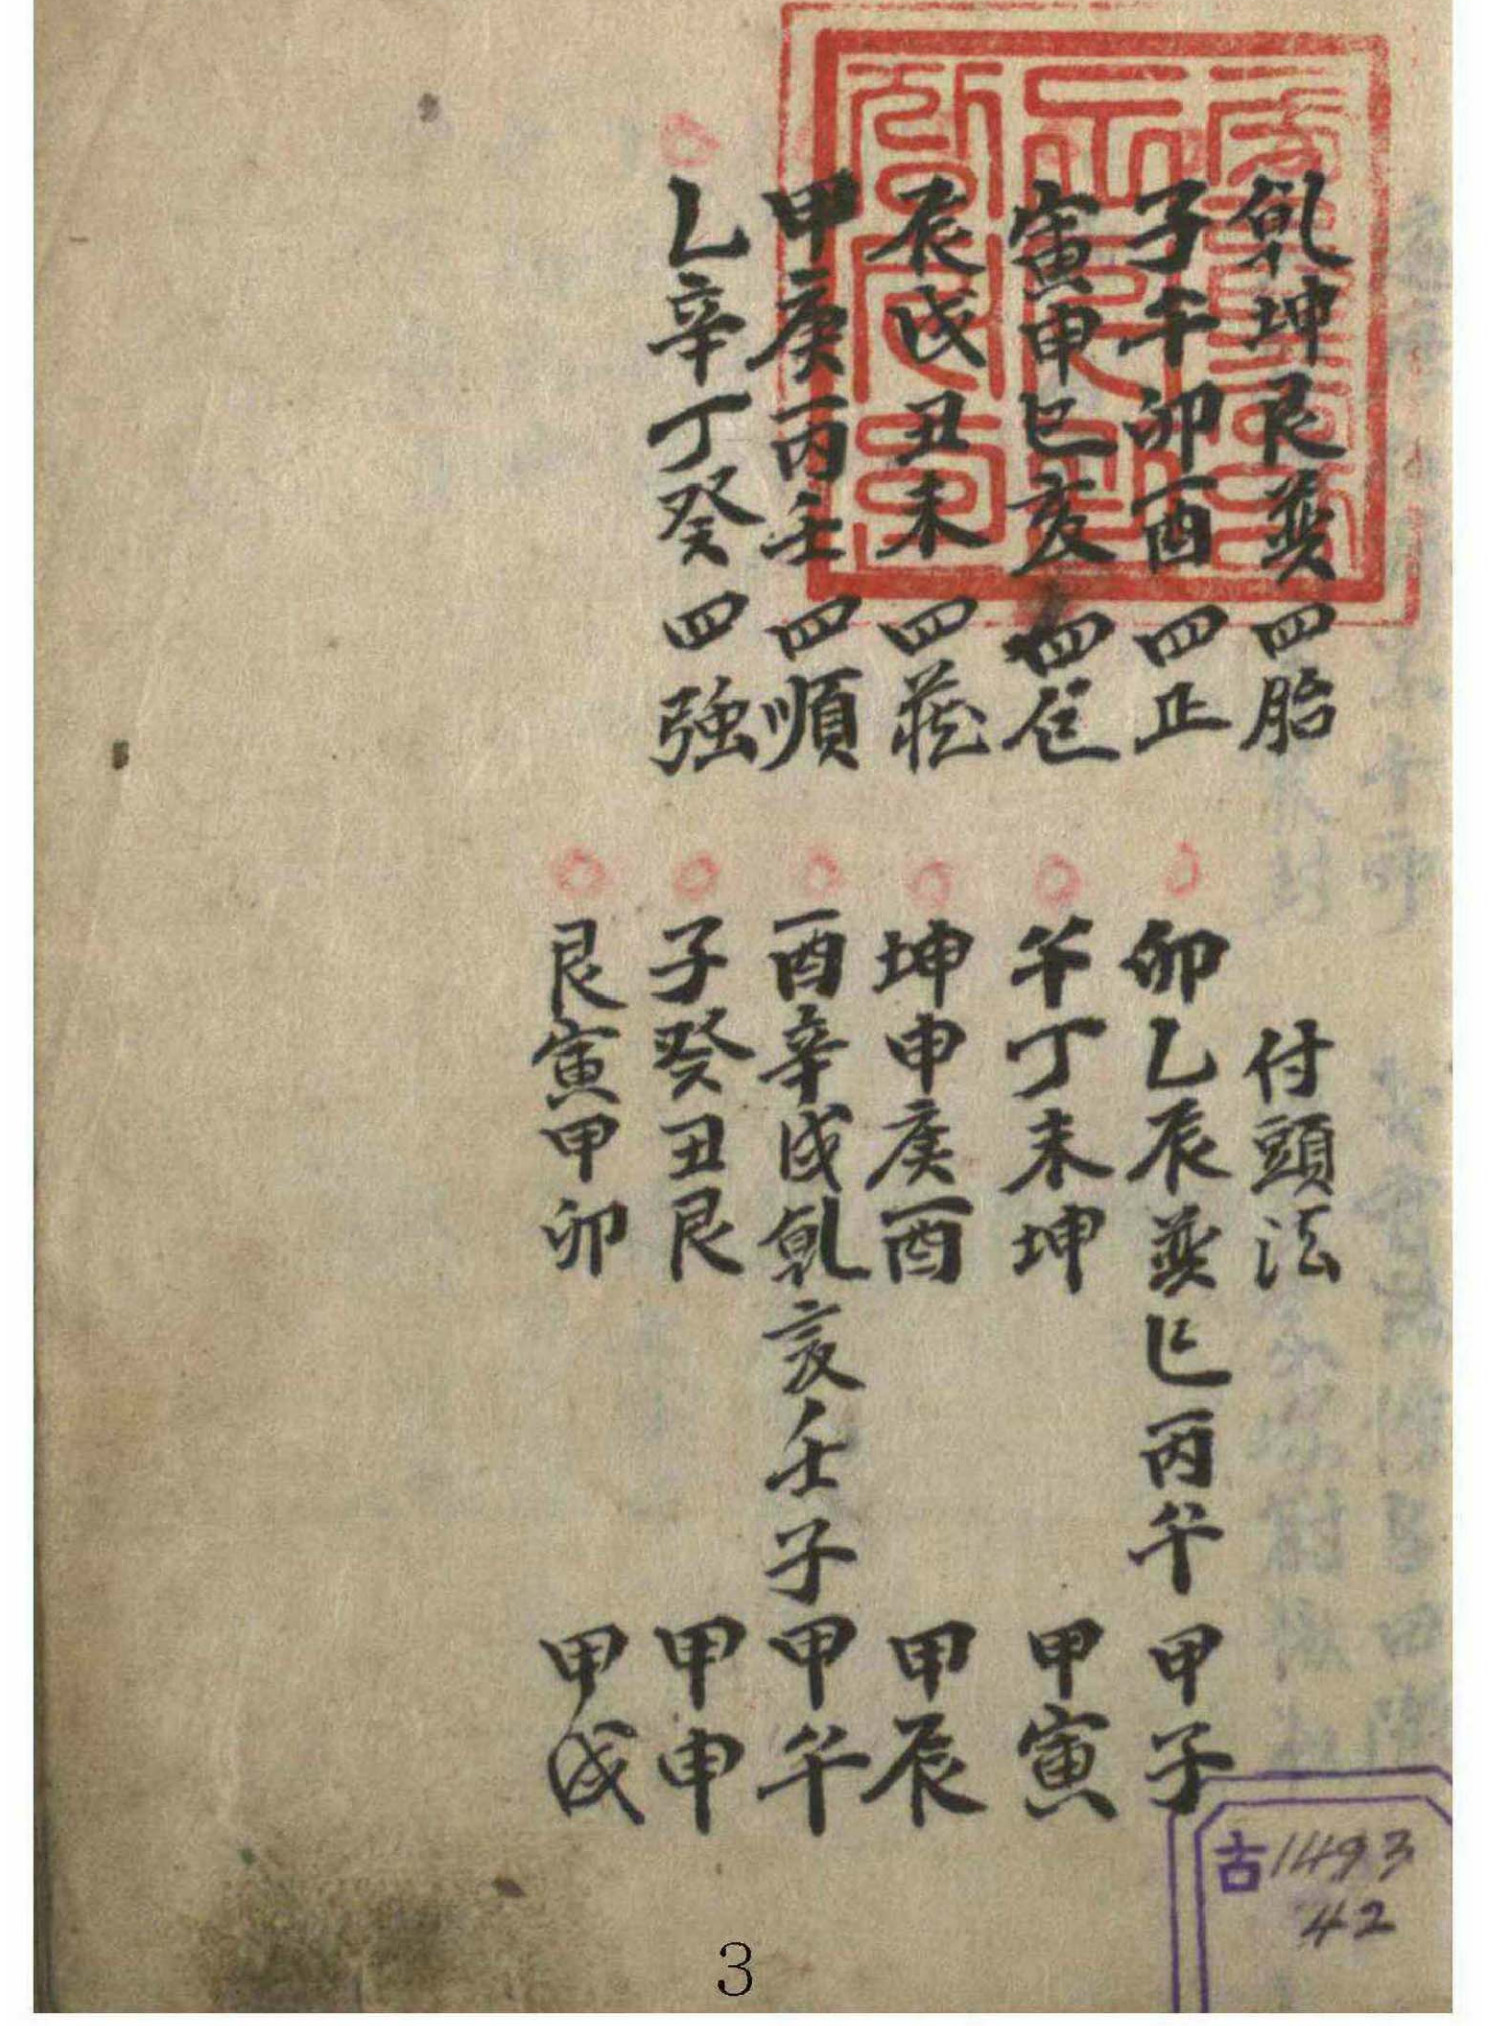 乾坤艮巽四胎
子午卯酉四正
寅申巳亥四㐌
辰戌丑未四藏
甲庚丙壬四順
乙辛丁癸四強
付頭法
卯乙辰巽巳丙午 甲子
午丁未坤 甲寅
坤申庚酉 甲辰
酉辛戌乾亥壬子 甲午
子癸丑艮 甲申
艮寅甲卯 甲戌
古1493
42
3